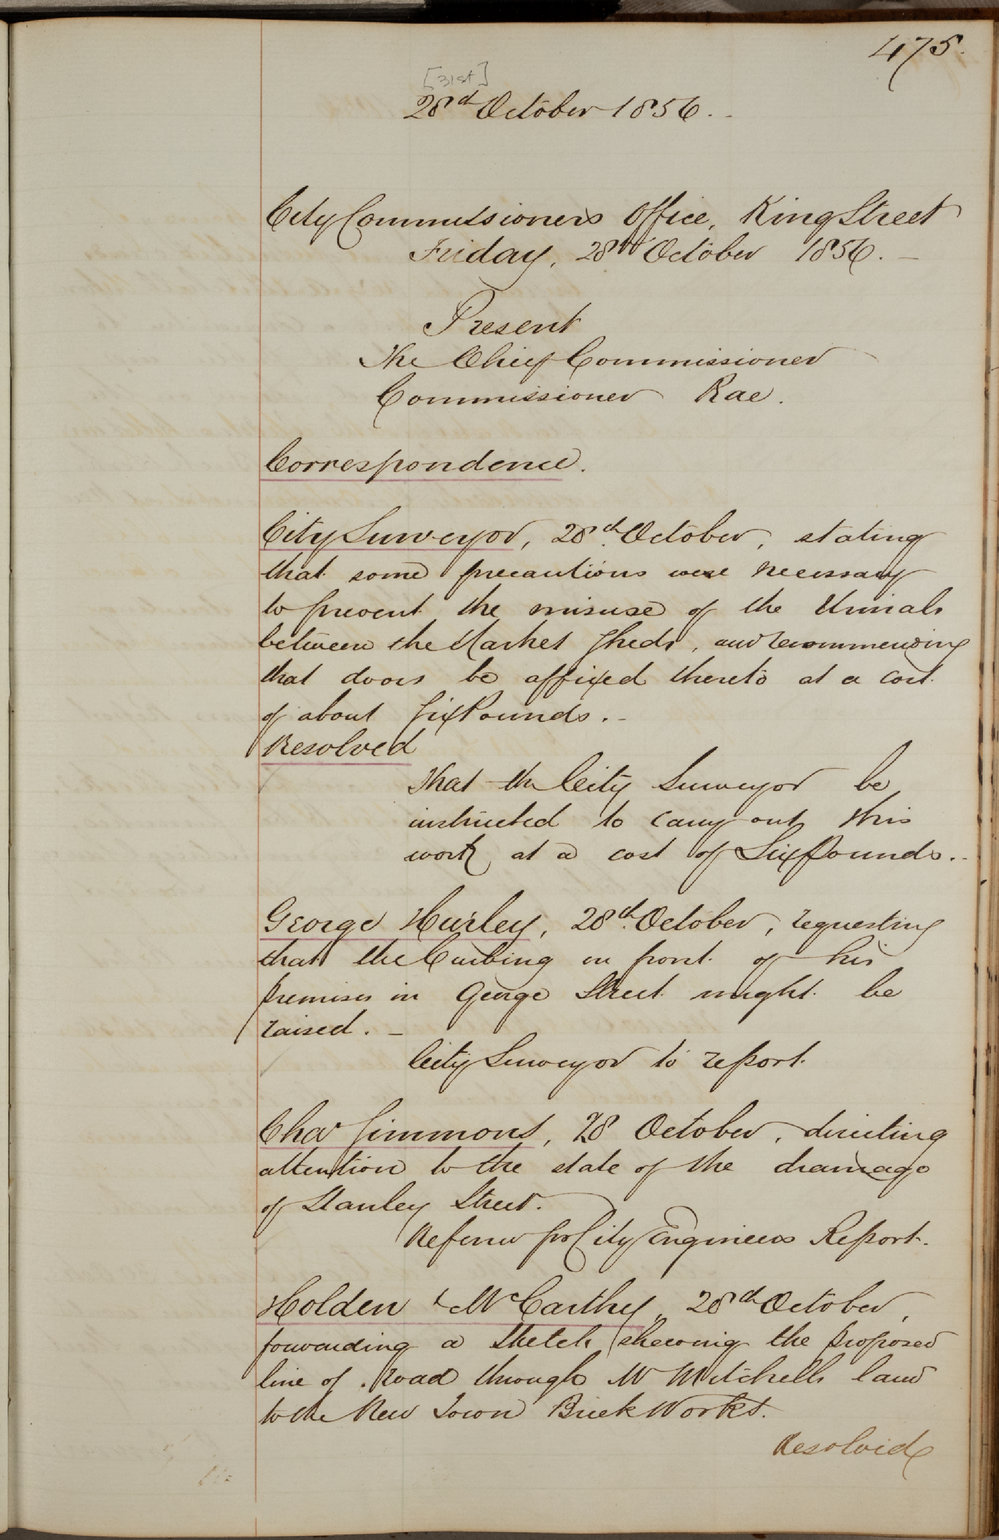 475.
[31st]
28th October 1856. -
City Commissioners Office, King Street
Friday, 28th October 1856. -
Present
The Chief Commissioner
Commissioner Rae.
Correspondence.
City Surveyor, 28th October, stating
that some precautions were necessary
to prevent the misuse of the Urinals
between the Market Sheds, and recommending
that doors be affixed thereto at a cost
of about Six Pounds. -
Resolved
That the City Surveyor be
instructed to carry out this
work at a cost of Six Pounds. -
George Hurley, 28th October, requesting
that the Curbing in front of his
premises in George Street might be
raised. -
City Surveyor to report
Chas Simmons, 28 October, directing
attention to the state of the drainage
of Stanley Street.
Refer for City Engineers Report.
Holden & McCarthy, 28th October,
forwarding a Sketch shewing the proposed
line of road through Mr Mitchells land
to the New Town Brick Works.
Resolved